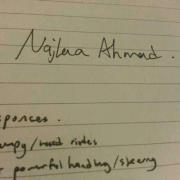 Najlaa Ahmad.
sponces.
umpy/road rides
powerful handling/steering